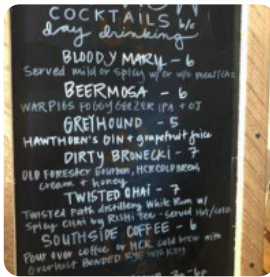 COCKTAILS b/c
day drinking
BLOODY MARY - 6
Served mild or spicy w/ or w/o meat/chz.
BEERMOSA - 6
WARPIGS FOGGY GEEZER IPA + OJ
GREYHOUND - 5
HAWTHORN'S GIN + grapefruit juice
DIRTY BRONECKI - 7
OLD FORESTER Bourbon, HCK COLD BREW,
cream + honey
TWISTED CHAI - 7
TWISTED Path distillery White Rum w/
Spicy CHAI by RISHI Tea - served Hot/cold.
SOUTHSIDE COFFEE - 6
Pour over coffee or HCK cold brew with
BONDED RYE